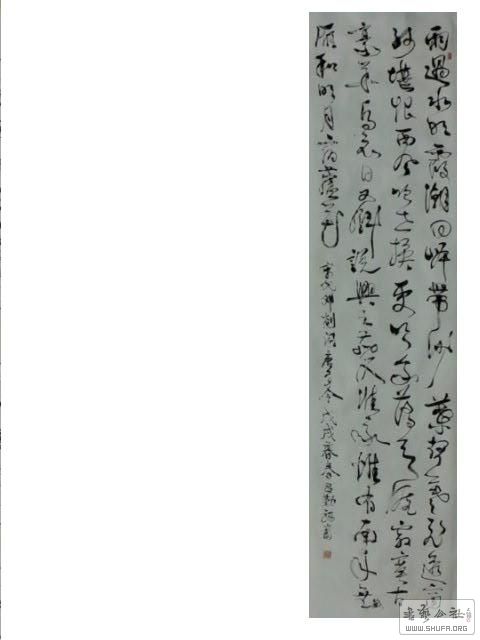 雨過水明霞潮回岸帶沙葉聲寒飛透窗
紗堪恨西風吹世換更吹我落天涯寂寞古
豪華烏衣日又斜說興亡燕入誰家惟有南來無數
雁和明月宿蘆花 宋代邓剡詞唐多令戊戌春
书艺公社
WWW.SHUFA.ORG